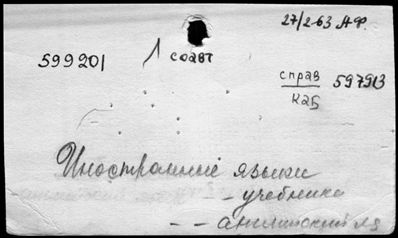 27/2-63 АФ.
599201 / соавт
справ 597913
каб
Иностранные языки
- учебники
- - английский яз